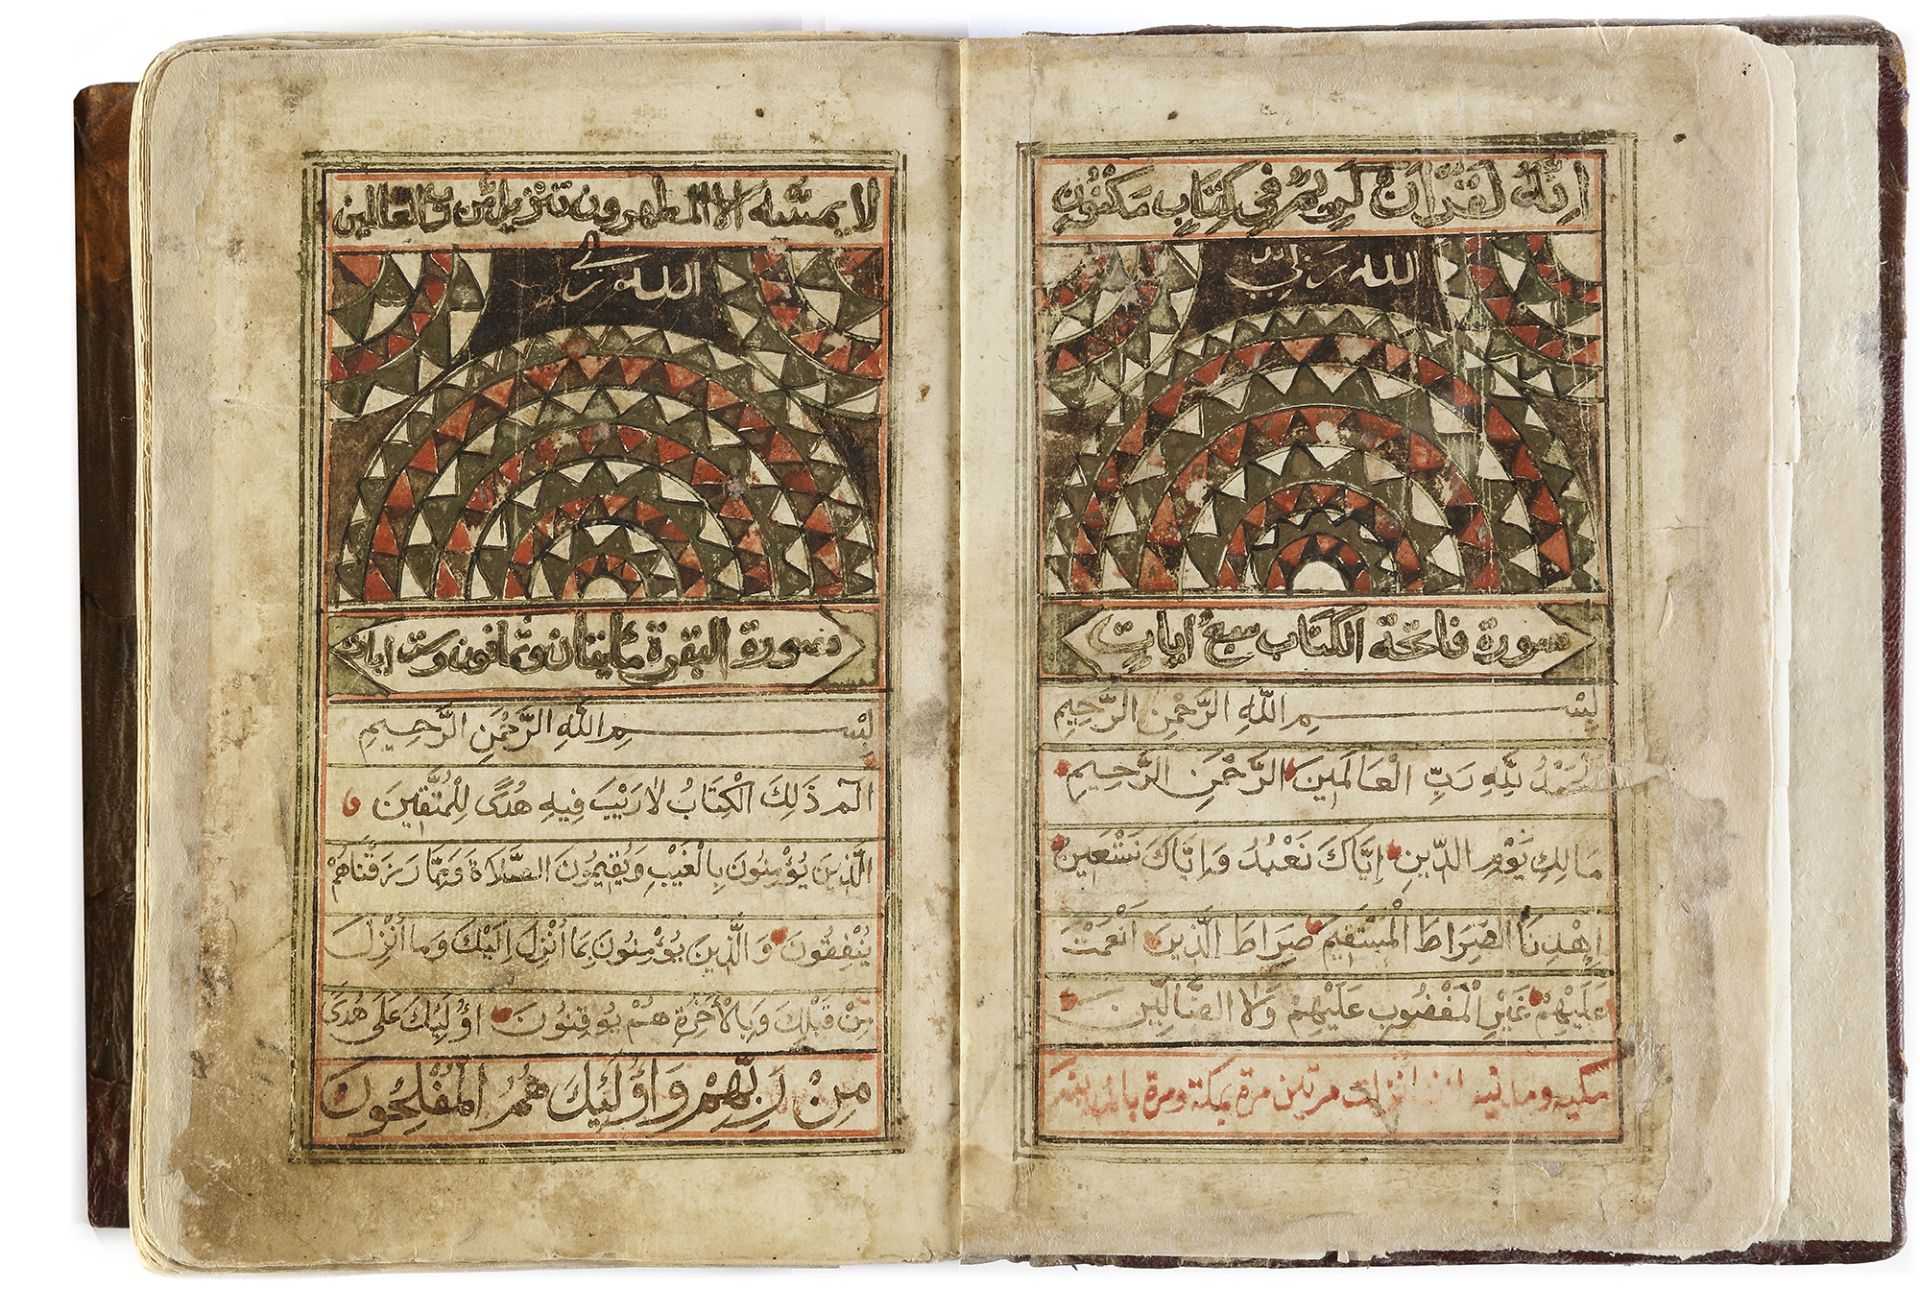 إنه لقرآن كريم في كتاب مكنون
الله ربي
سورة فاتحة الكتاب سبع ايات
بِسْمِ اللَّهِ الرَّحْمَنِ الرَّحِيمِ
الحَمْدُ لِلَّهِ رَبِّ الْعَالَمِينَ الرَّحْمَنِ الرَّحِيمِ
مَالِكِ يَوْمِ الدِّينِ اِيَّاكَ نَعْبُدُ وَاِيَّاكَ نَسْتَعِينُ
اِهْدِنَا الصِّرَاطَ الْمُسْتَقِيمَ صِرَاطَ الَّذِينَ اَنْعَمْتَ
عَلَيْهِمْ غَيْرِ الْمَغْضُوبِ عَلَيْهِمْ وَلَا الضَّالِّينَ
مكيه ومدنيه انزلت مرتين مرة بمكة ومرة بالمدينة
لا يمسه الا المطهرون تنزيل من رب العالمين
الله ربي
سورة البقرة مايتان وثمانون وست ايات
بِسْمِ اللَّهِ الرَّحْمَنِ الرَّحِيمِ
الم ذَلِكَ الْكِتَابُ لَا رَيْبَ فِيهِ هُدًى لِلْمُتَّقِينَ
الَّذِينَ يُؤْمِنُونَ بِالْغَيْبِ وَيُقِيمُونَ الصَّلَاةَ وَمِمَّا رَزَقْنَاهُمْ
يُنْفِقُونَ وَالَّذِينَ يُؤْمِنُونَ بِمَا اُنْزِلَ اِلَيْكَ وَمَا اُنْزِلَ
مِنْ قَبْلِكَ وَبِالْاَخِرَةِ هُمْ يُوقِنُونَ اُولَئِكَ عَلَى هُدًى
مِنْ رَبِّهِمْ وَاُولَئِكَ هُمُ الْمُفْلِحُونَ